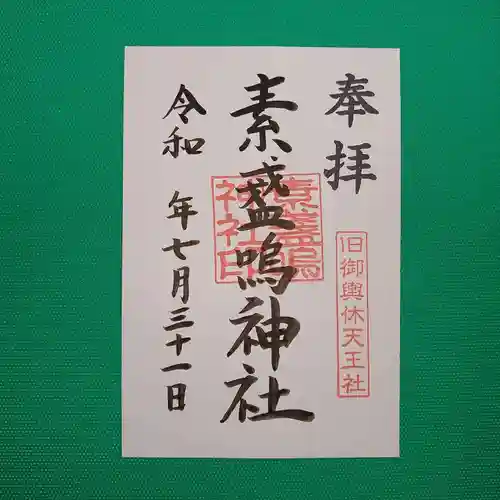 奉拝
旧御輿休天王社
素盞嗚神社
素盞嗚神社印
令和 年七月三十一日